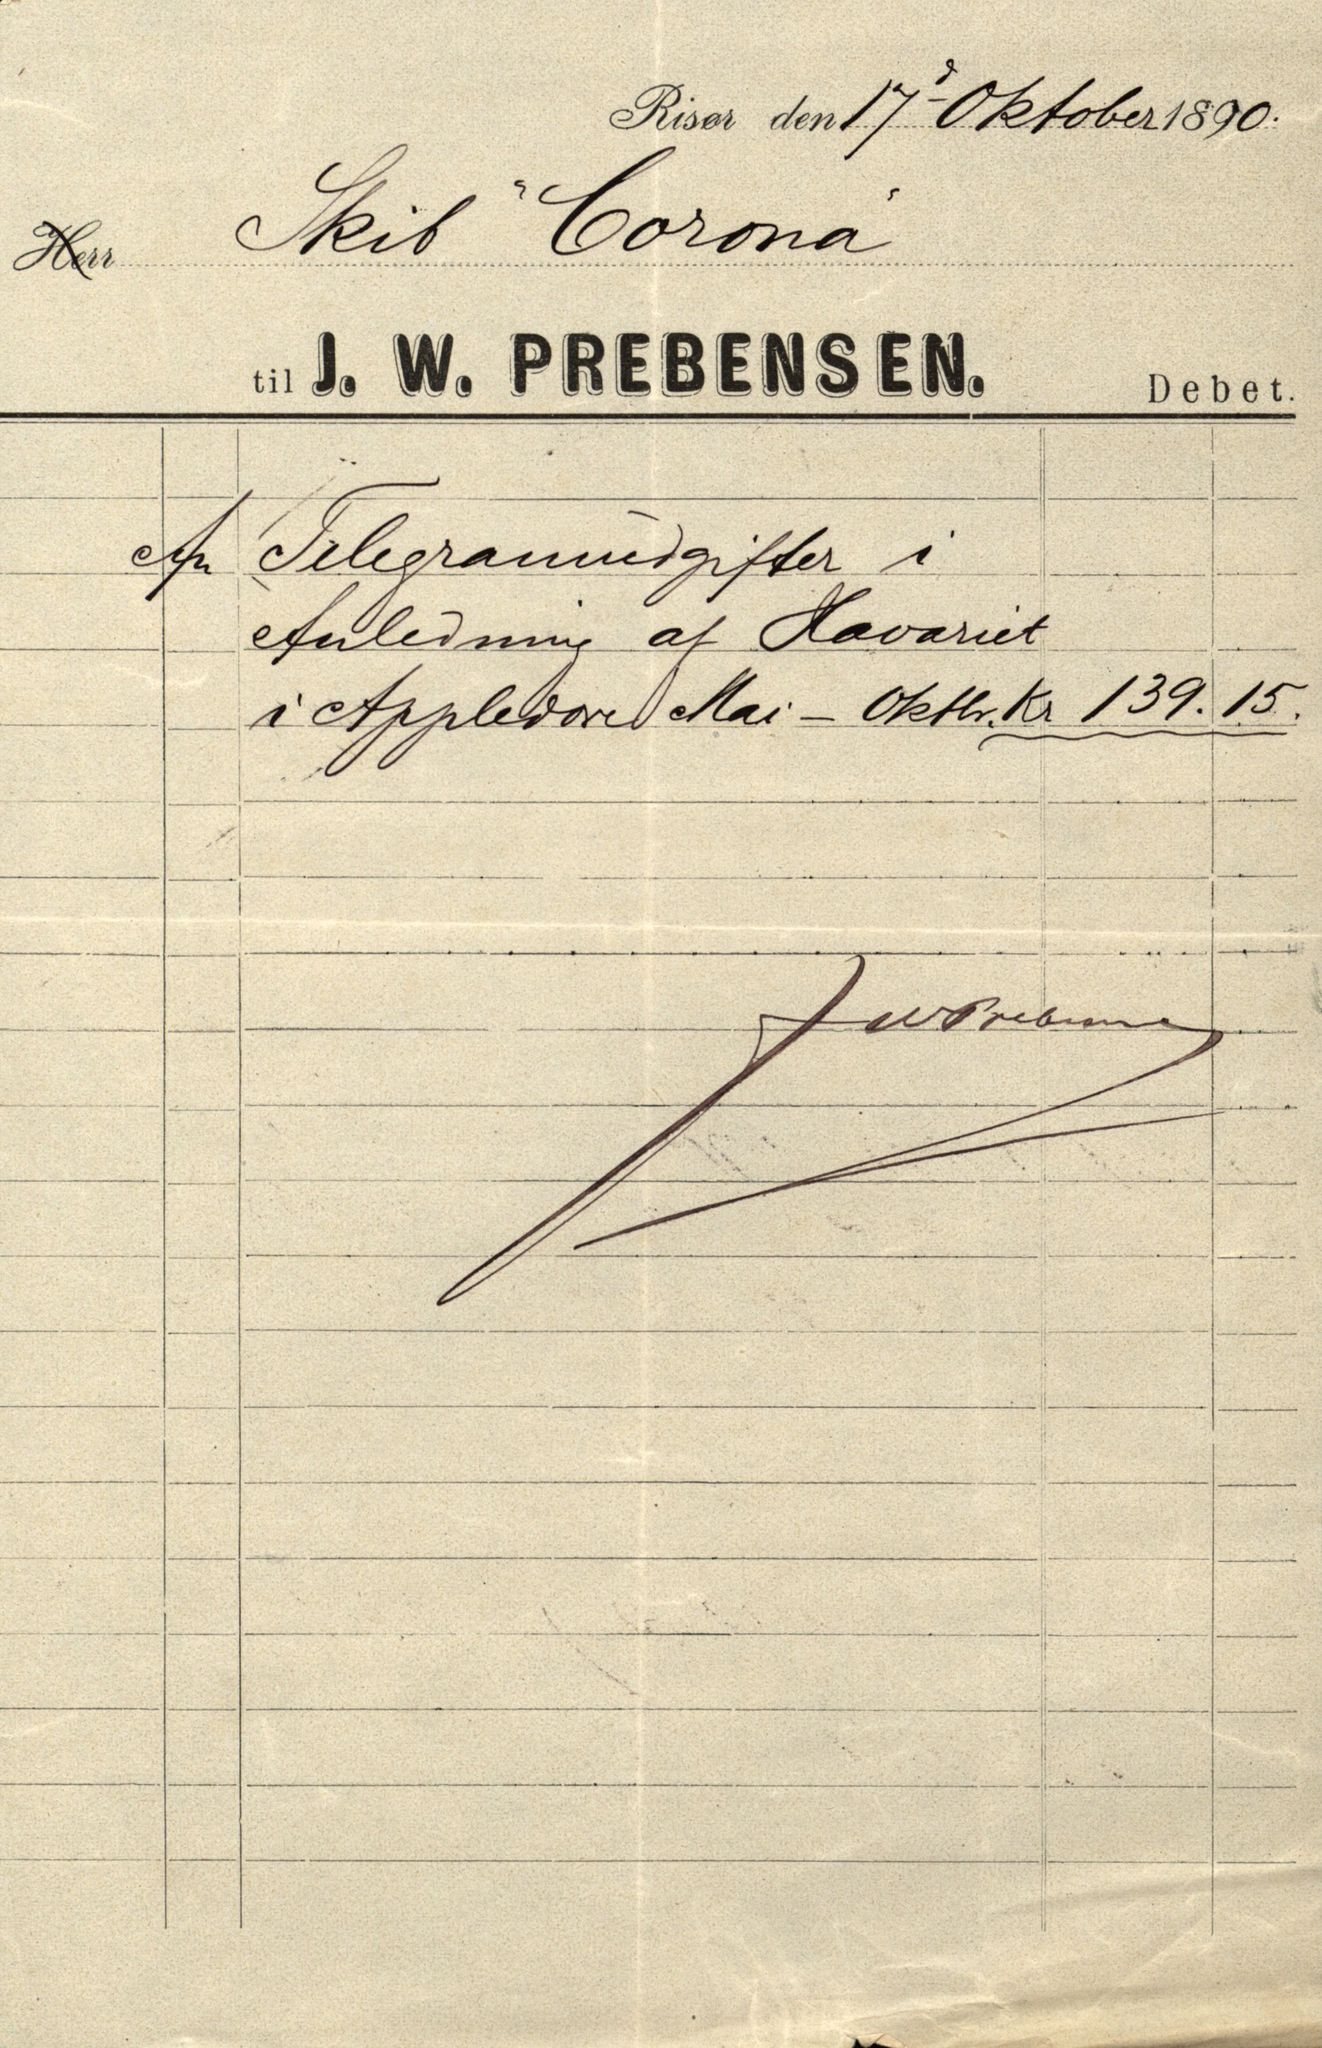 Risør den 17d Oktober 1890.
Herr Skib "Corona"
til J. W. PREBENSEN. Debet.
An Telegramudgifter i
Anledning af Havariet
i Appledore Mai – Oktbr. Kr 139.15.
JWPrebensen